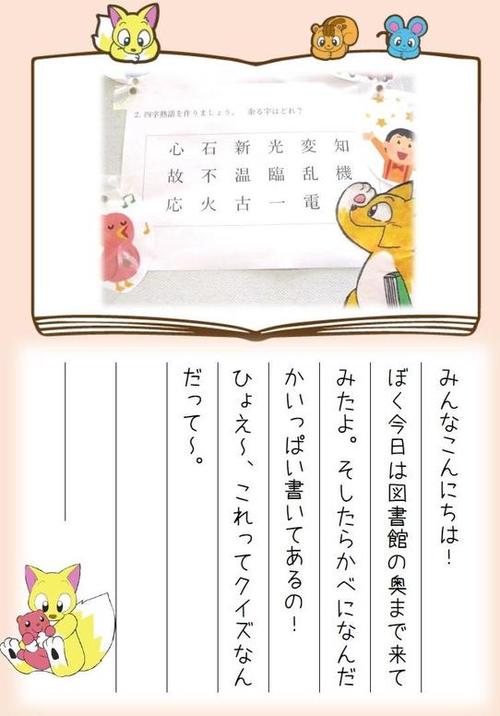 2.四字熟語を作りましょう。 余る字はどれ?
心 石 新 光 変 知
故 不 温 臨 乱 機
応 火 古 一 電
みんなこんにちは!
ぼく今日は図書館の奥まで来て
みたよ。そしたらかべになんだ
かいっぱい書いてあるの!
ひょえ〜、これってクイズなん
だって〜。